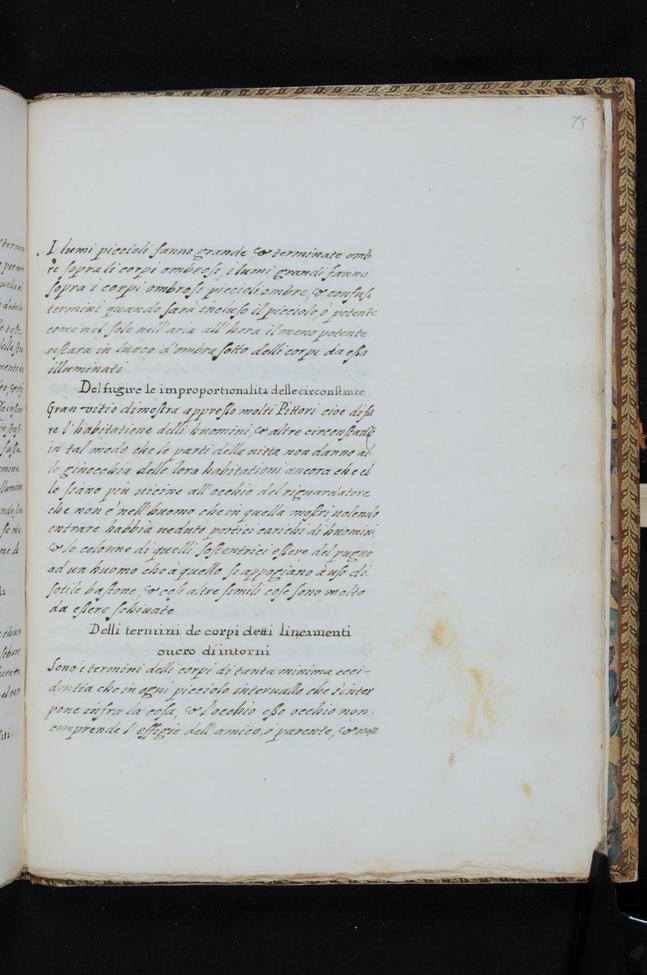 75
I lumi piccioli fanno grande, & terminate omb
re sopra li corpi ombrosi, i lumi grandi fanno
sopra i corpi ombrosi piccioli ombre, & confusi
termini quando sara incluso il picciolo, o potente
come nel sole nell'aria all'hora il meno potente
restara in luoco d'ombra sotto delli corpi da esso
illuminati
Del fugire le improportionalita delle circonstanze
Gran vitio dimostra appresso molti Pittori cioe di fa
re l'habitatione delli huomini, & altre circonstantie
in tal modo che le parti della vitta non danno al
le ginocchia delle lora habitationi ancora che el
le siano piu vicine all'occhio del riguardatore
che non è nell'huomo che in quella mostri volendo
entrare habbia veduto portici carichi di huomini,
& le colonne di quelli sostentrici essere del pugno
ad un huomo che à quello si appogiano à uso di
sotile bastone, & cose altre simili cose sono molto
da essere schivate
Delli termini de corpi detti lineamenti
overo di intorni
Sono i termini delli corpi di tanta minima evi-
dentia che in ogni picciolo intervallo che s'inter
pone infra la cosa, & l'occhio esso occhio non
comprende l'effigie dell'amico, o parente, & non